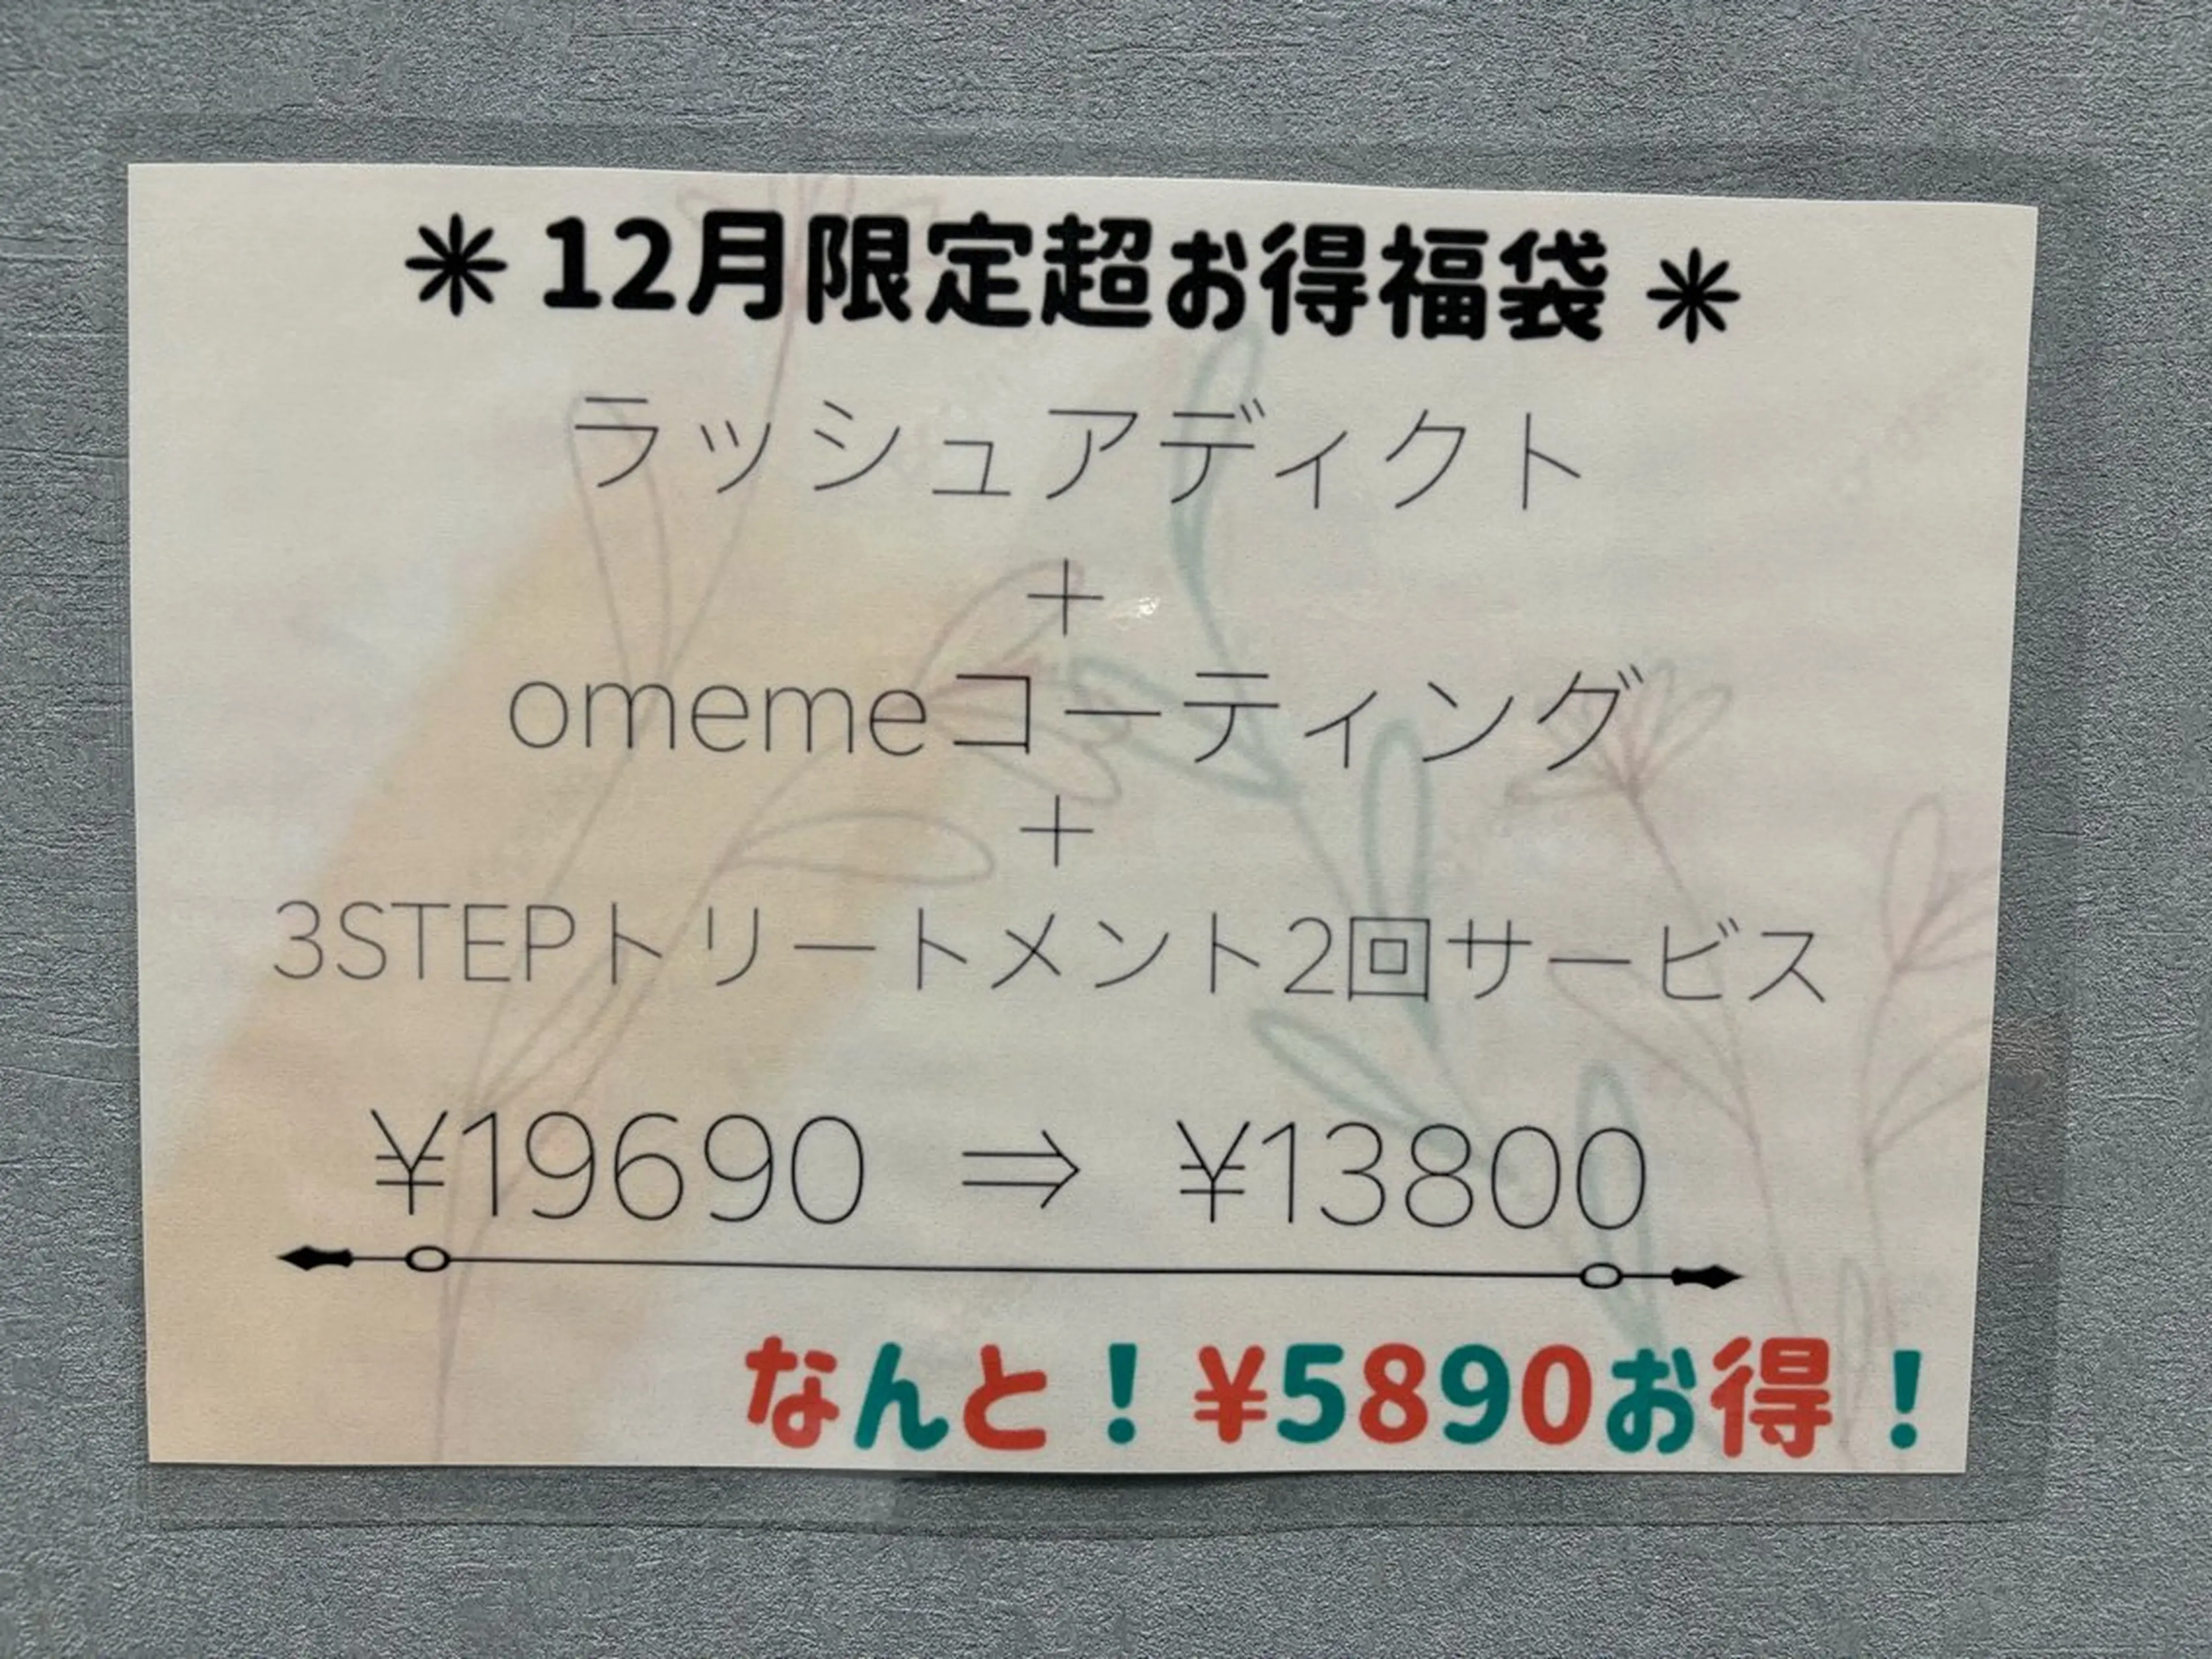 ✳12月限定超お得福袋✳
ラッシュアディクト
+
omemeコーティング
+
3STEPトリートメント2回サービス
¥19690 ⇒ ¥13800
なんと！¥5890お得！